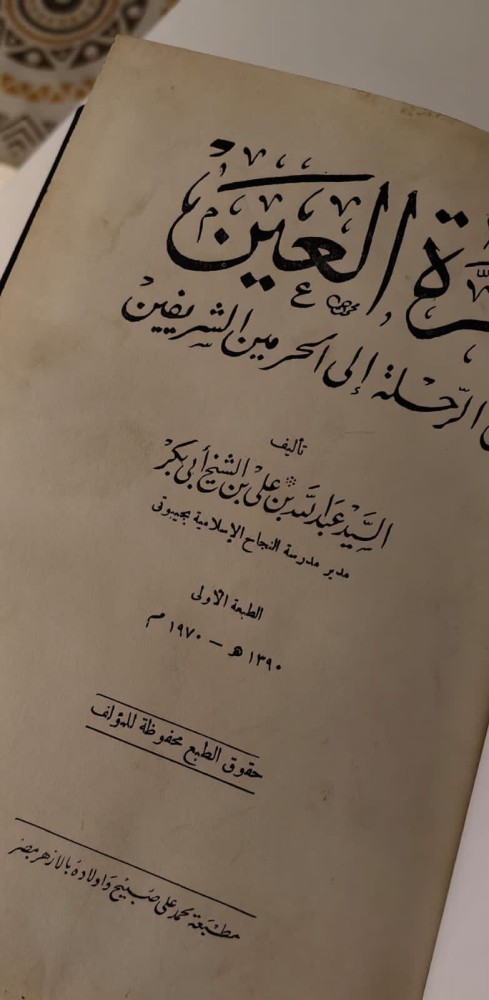 ـرة العين
الرحلة إلى الحرمين الشريفين
تأليف
السيد عبد الله بن علي بن الشيخ أبي بكر
مدير مدرسة النجاح الإسلامية بجيبوتى
الطبعة الأولى
١٣٩٠ هـ - ١٩٧٠ م
حقوق الطبع محفوظة للمؤلف
مطبعة محمد علي صبيح وأولاده بالأزهر بمصر